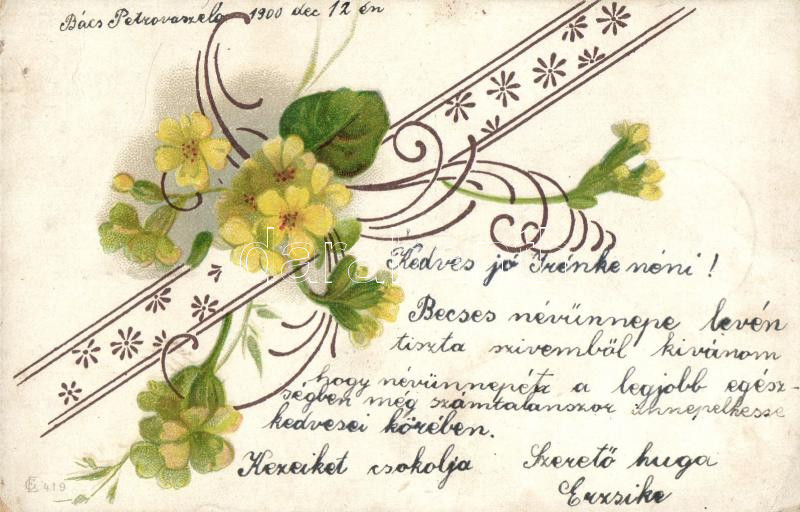 Bács Petrovaszéla 1900 dec 12 én
Kedves jó Irénke néni!
Becses névünnepe levén
tiszta szivemből kivánom
hogy névünnepét a legjobb egész-
ségben még számtalanszor ünnepelhesse
kedvesei körében.
Kezeiket csokolja Szerető huga
Erzsike
419